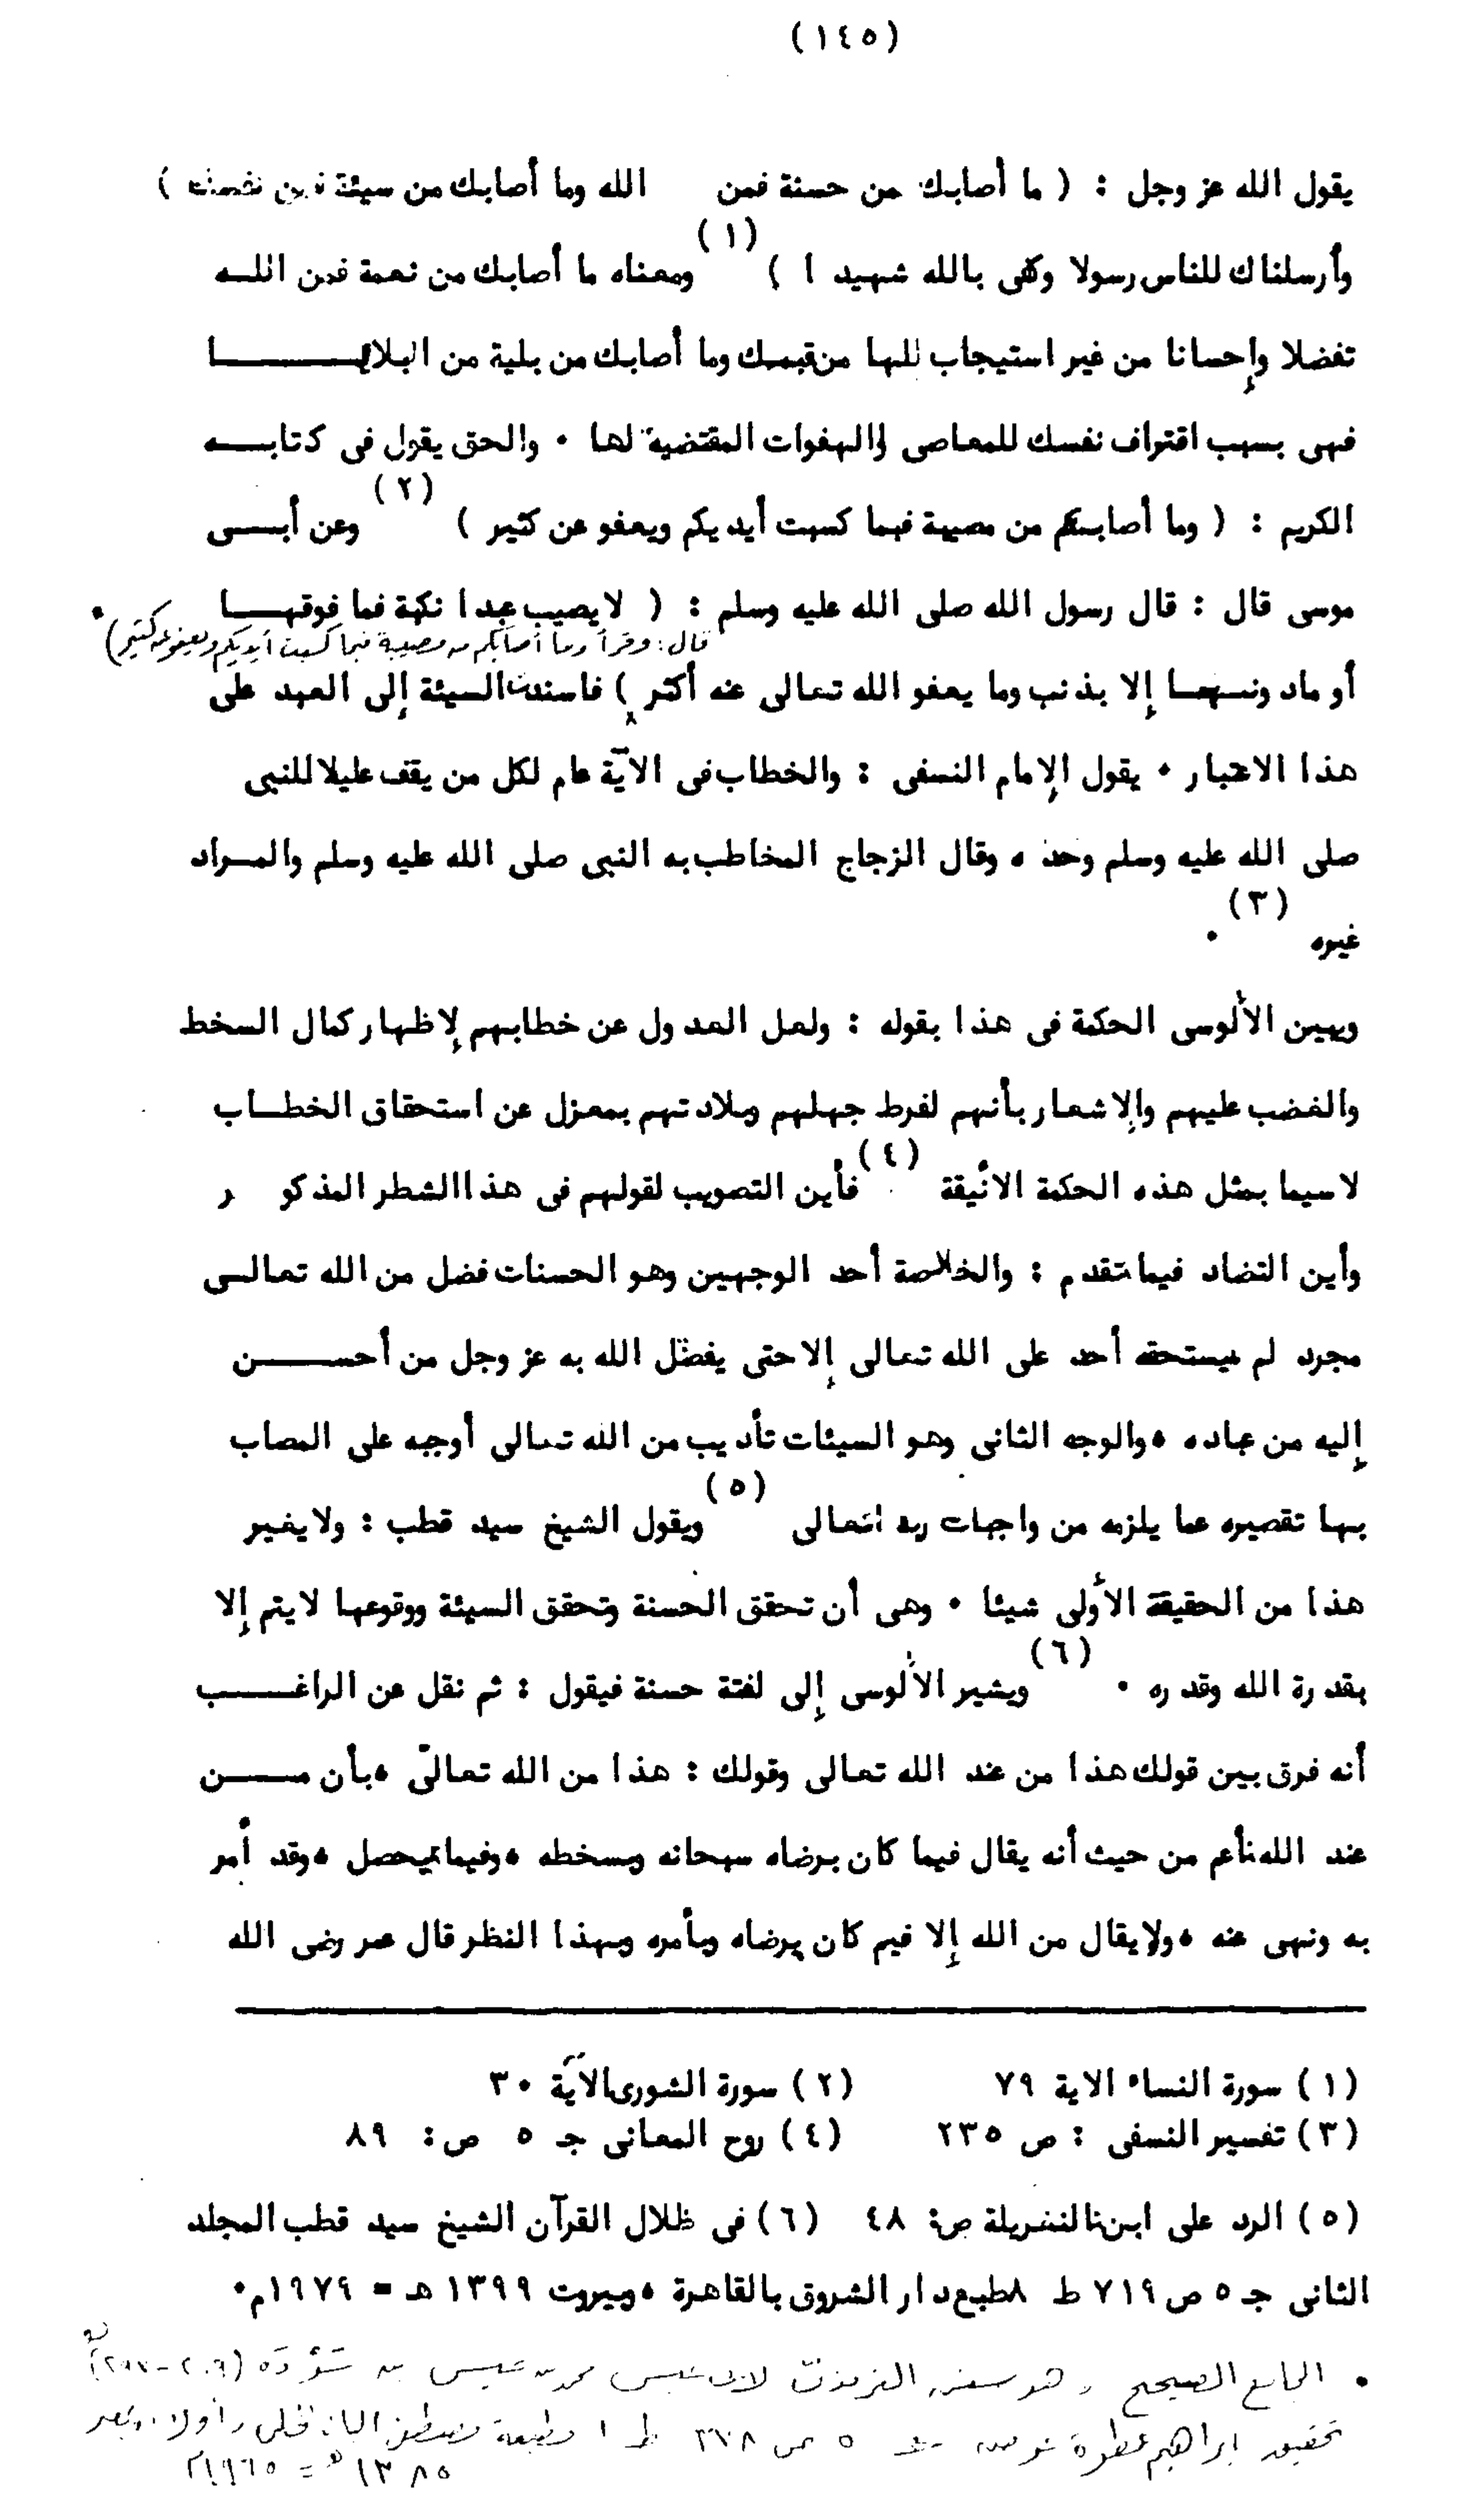 (١٤٥)
يقول الله عز وجل : ( ما أصابك من حسنة فمن الله وما أصابك من سيئة فمن نفسك )
وأرسلناك للناس رسولا وكفى بالله شهيد ا ) (١) ومعناه ما أصابك من نعمة فمن اللـه
تفضلا وإحسانا من غير استيجاب لها من قبلك وما أصابك من بلية من البلايـــــا
فهى بسبب اقتراف نفسك للمعاصى والهفوات المقتضية لها • والحق يقول فى كتابـــه
الكريم : ( وما أصابكم من مصيبة فبما كسبت أيديكم ويعفو عن كثير ) (٢) وعن أبـــى
موسى قال : قال رسول الله صلى الله عليه وسلم : ( لا يصيب عبدا نكبة فما فوقهـــا •
قال : وقرأ وما أصابكم من مصيبة فبما كسبت أيديكم ويعفو عن كثير )
أو ماد ونـهـا إلا بذنب وما يعفو الله تعالى عنه أكثر ) فاسندت السيئة إلى العبد على
هذا الاعتبار • يقول الإمام النسفى : والخطاب فى الآية عام لكل من يقف عليلا للنبى
صلى الله عليه وسلم وحده ، وقال الزجاج المخاطب به النبى صلى الله عليه وسلم والمـراد
غيره (٣) •
ويبين الألوسى الحكمة فى هذا بقوله : ولعل العدول عن خطابهم لإظهار كمال السخط
والغضب عليهم والإشعار بأنهم لفرط جهلهم وبلادتهم بمعزل عن استحقاق الخطـاب
لاسيما بمثل هذه الحكمة الأنيقة (٤) فأين التصويب لقولهم فى هذا الشطر المذكو ر
وأين التضاد فيما تقدم : والخلاصة أحد الوجهين وهو الحسنات فضل من الله تعالـى
مجرد لم يستحقه أحد على الله تعالى إلا حتى يفضّل الله به عز وجل من أحســـن
إليه من عباده ،والوجه الثانى وهو السيئات تأديب من الله تعالى أوجبه على المصاب
بها تقصيره عما يلزمه من واجبات ربه تعالى (٥) ويقول الشيخ سيد قطب : ولا يغير
هذا من الحقيقة الأولى شيئا • وهى أن تحقق الحسنة وتحقق السيئة ووقوعها لا يتم إلا
بقدرة الله وقدره • (٦) ويشير الألوسى إلى لفتة حسنة فيقول : ثم نقل عن الراغـــب
أنه فرق بين قولك هذا من عند الله تعالى وقولك : هذا من الله تعالى ،بأن مـــن
عند الله أعم من حيث أنه يقال فيما كان برضاه سبحانه وبسخطه ،وفيما يحصل ،وقد أمر
به ونهى عنه ،ولا يقال من الله إلا فيم كان برضاه وبأمره وبهذا النظر قال عمر رضى الله
(١) سورة النساء الاية ٧٩ (٢) سورة الشورى الآية ٣٠
(٣) تفسير النسفى : ص ٢٣٥ (٤) روح المعانى جـ ٥ ص : ٨٩
(٥) الرد على ابن النغريلة ص: ٤٨ (٦) فى ظلال القرآن الشيخ سيد قطب المجلد
الثانى جـ ٥ ص ٧١٩ ط ٨ طبع دار الشروق بالقاهرة ،وبيروت ١٣٩٩ هـ = ١٩٧٩م•
• الجامع الصحيح وهو سنن الترمذى لأبى عيسى محمد بن عيسى بن سَوْرَة (٢٠٩-٢٩٧هـ)
تحقيق إبراهيم عطوة عوض جـ ٥ ص ٣٧٨ ط ١ مطبعة مصطفى البابى الحلبى وأولاده بمصر
١٣٨٥هـ = ١٩٦٥م